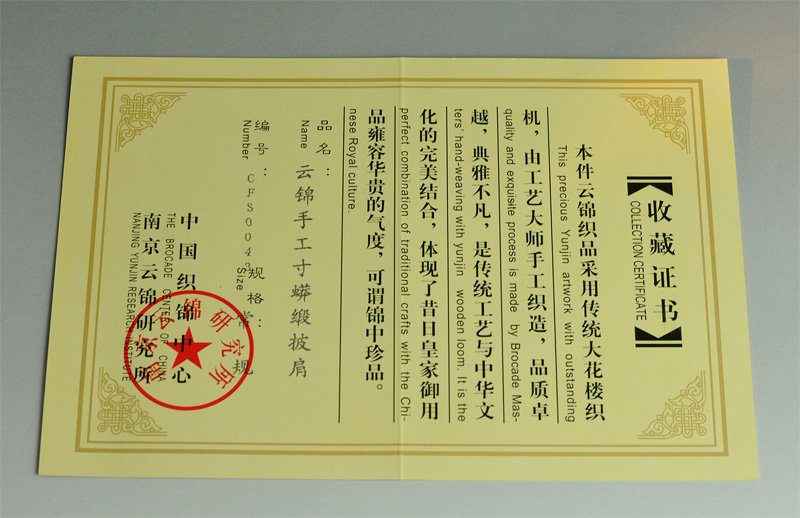 收藏证书
COLLECTION CERTIFICATE
本件云锦织品采用传统大花楼织
This precious Yunjin artwork with outstanding
机，由工艺大师手工织造，品质卓
quality and exquisite process is made by Brocade Mas-
越，典雅不凡，是传统工艺与中华文
ters' hand-weaving with yunjin wooden loom. It is the
化的完美结合，体现了昔日皇家御用
perfect combination of traditional crafts with the Chi-
品雍容华贵的气度，可谓锦中珍品。
nese Royal culture.
品名：云锦手工寸蟒缎披肩
Name
编号：CFS0042 规格：常规
Number Size
中国织锦中心
THE BROCADE CENTER OF CHINA
南京云锦研究所
NANJING YUNJIN RESEARCH INSTITUTE
南京云锦研究所